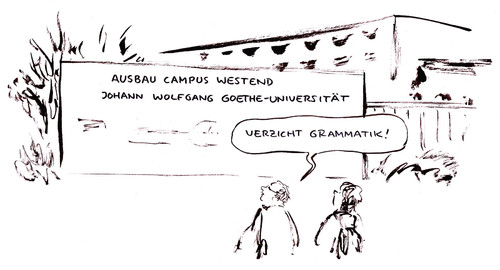 AUSBAU CAMPUS WESTEND
JOHANN WOLFGANG GOETHE-UNIVERSITÄT
VERZICHT GRAMMATIK!